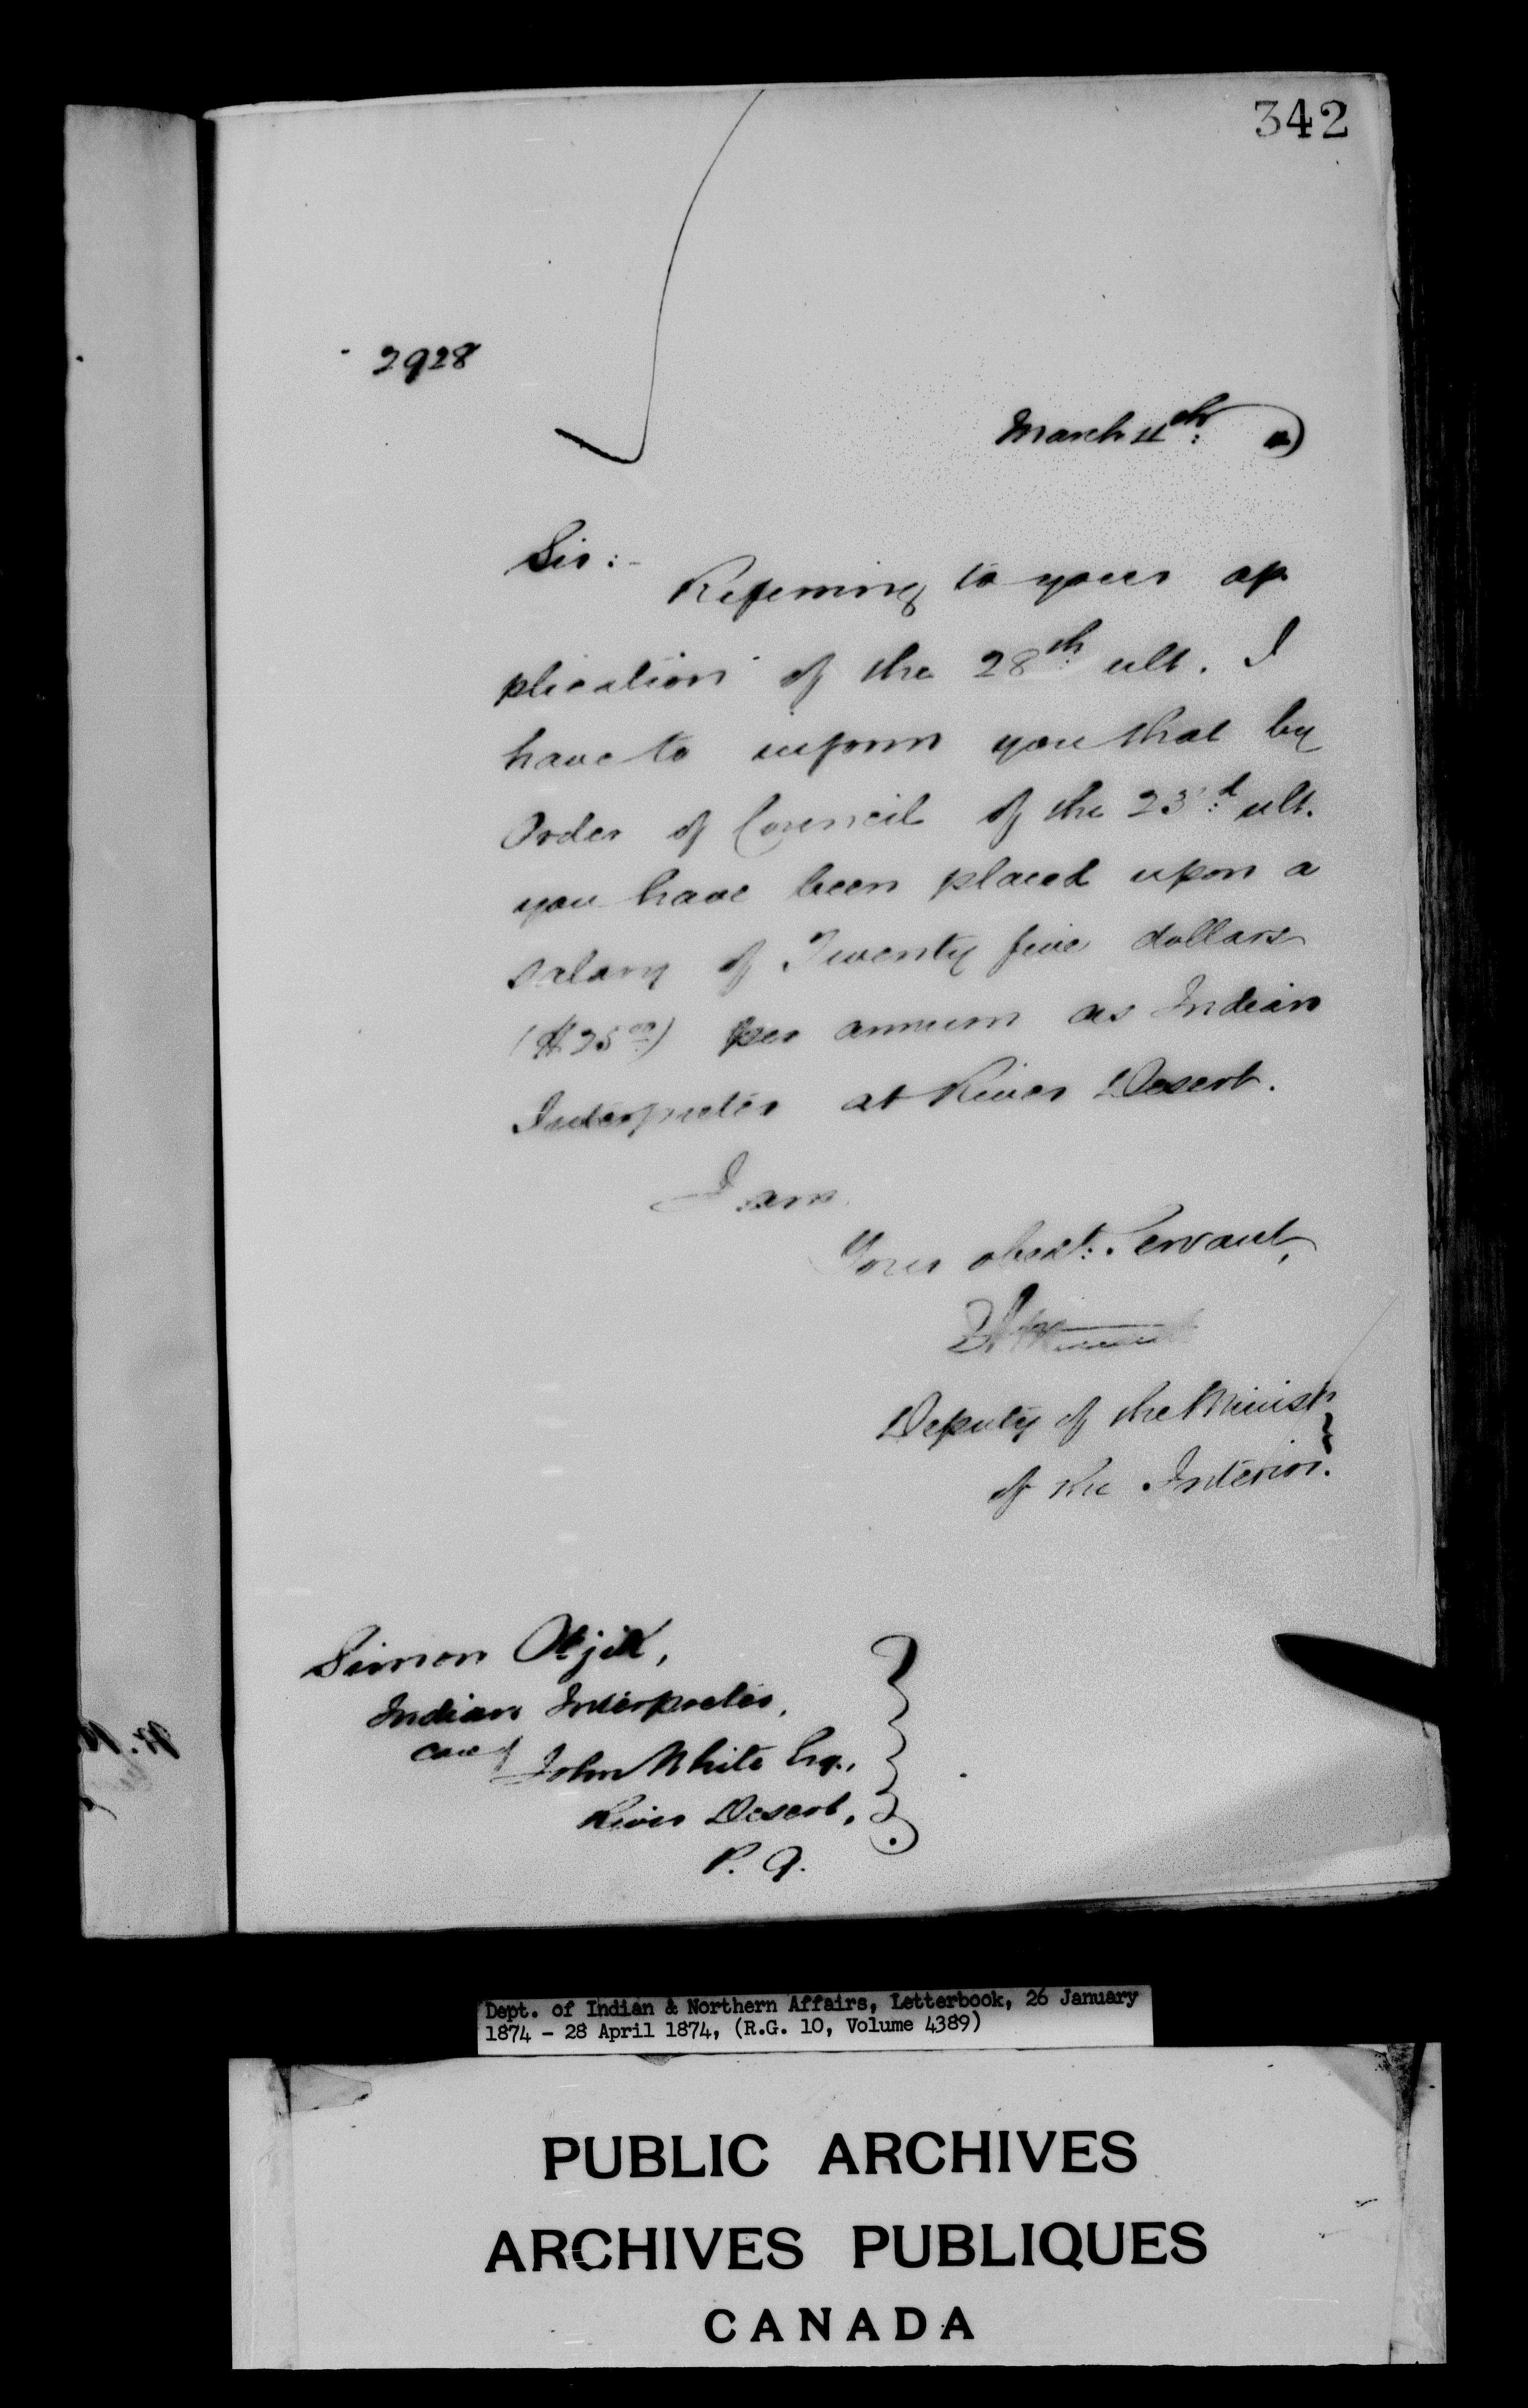 342
2928
March 11th:
Sir:-
Referring to your ap
plication of the 28th ult. I
have to inform you that by
Order of Council of the 23rd ult.
you have been placed upon a
salary of Twenty five dollars
($25.00) per annum as Indian
Interpreter at River Desert.
I am
Your obedt: Servant,
Deputy of the Minister
of the Interior.
Simon
Indian Interpreter,
care of John White Esq.,
River Desert,
P. Q.
Dept. of Indian & Northern Affairs, Letterbook, 26 January
1874 - 28 April 1874, (R.G. 10, Volume 4389)
PUBLIC ARCHIVES
ARCHIVES PUBLIQUES
CANADA